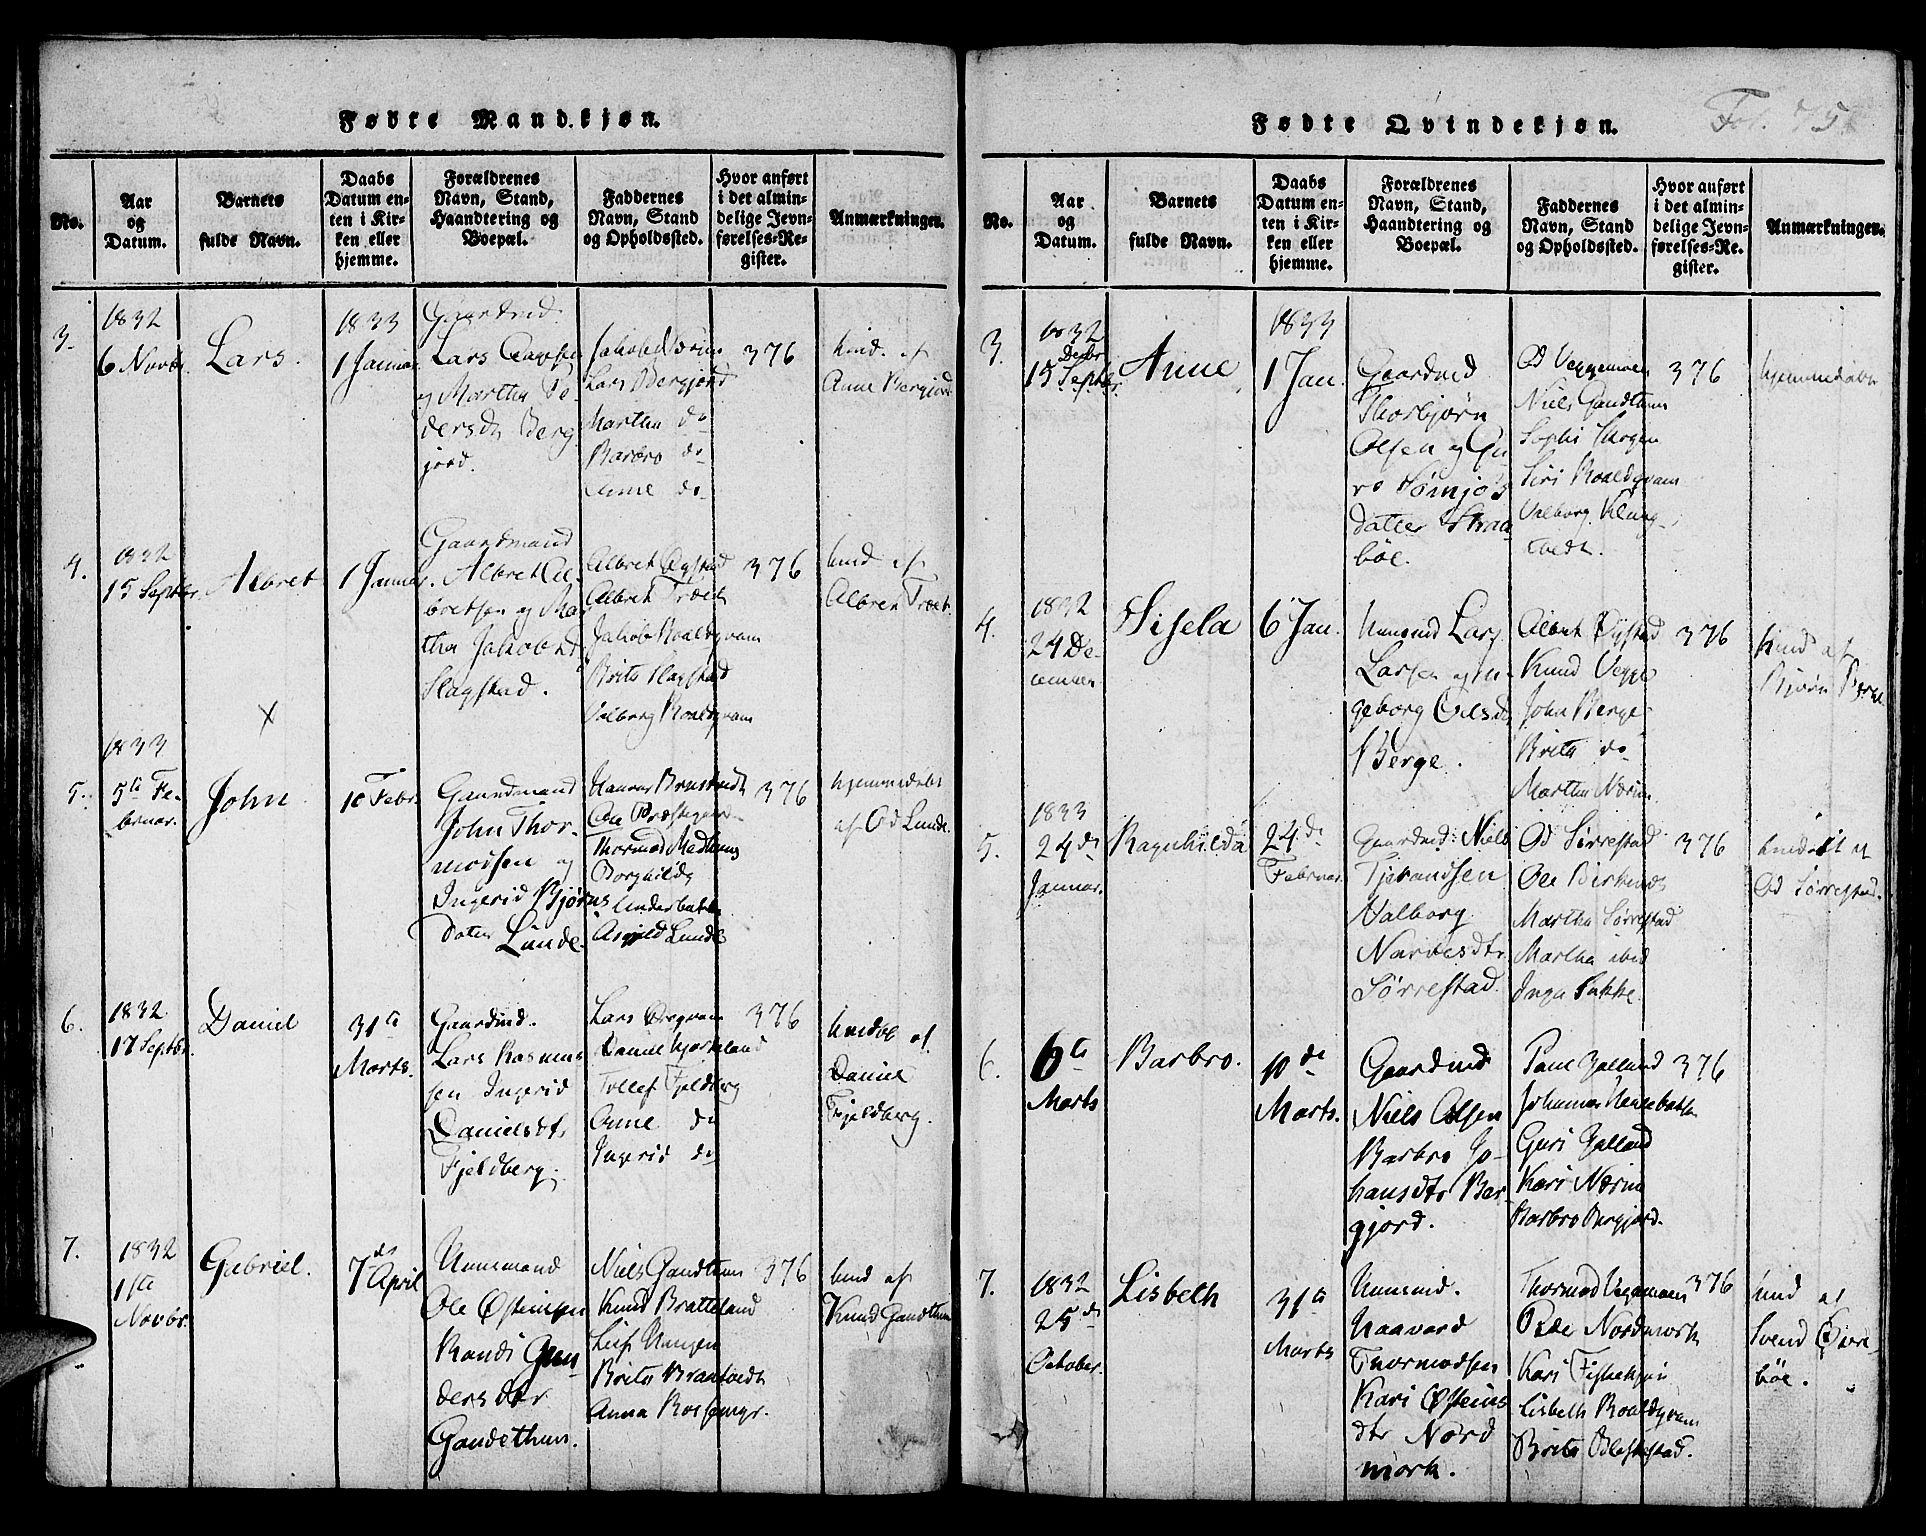 Fødte Mandkjøn.
No.
Aar
og
Datum.
Barnets
fulde Navn.
Daabs
Datum en-
ten i Kir-
ken eller
hjemme.
Forældrenes
Navn, Stand,
Haandtering og
Boepæl.
Faddernes
Navn, Stand
og Opholdssted.
Hvor anført
i det almin-
delige Jevn-
førelses-Re-
gister.
Anmærkninger.
3.
1832
6 Novbr.
Lars.
1833
1 Januar.
Gaardmd.
Lars
og Martha Pe-
dersdt Berg-
jord.
Jakob Nærim
Lars Bergjord
Martha do
Barbro do
Anne do
376
hjemd. af
Anne Bergjord
4.
1832
15 Septbr.
Albret
1 Januar.
Gaardmand
Albret Al-
bretsen og Mar
tha Jakobsd
Slagstad.
Albret Øystad
Albret Træet
Jakob Roaldqvam
Brita Slagstad
Valborg Roaldqvam
376
hmd. af
Albret Træet.
5.
1833
5te Fe-
bruar.
John
10 Febr.
Gaardmand
John Thor-
modsen og
Ingerid Bjørns
Datter Lunde.
Ole Præstegaard
Thormod Medhuus
Borghilda
Underbakke
Lunde
376
hjemmedøbt
af Od Lunde.
6.
1832
17 Septbr.
Daniel
31te
Marts.
Gaardmd.
Lars Rasmus
sen Ingerid
Danielsdtr
Fjeldberg.
Lars
Daniel Hjorteland
Tollef Fjeldberg
Anne do
Ingerid do
376
hmdøb af
Daniel
Fjeldberg.
7.
1832
1ste
Novbr.
Gabriel.
7de
April
Unnsmand
Ole Østensen
Randi Gun
dersdtr
Gandethun.
Niels Gandthun
Knud Bratteland
Lisf Haugen
Brita Brautvedt
Anna
376
hmd af
Knud Gandthun
Fødte Qvindekjøn.
Fol. 75
No.
Aar
og
Datum.
Barnets
fulde Navn.
Daabs
Datum en-
ten i Kir-
ken eller
hjemme.
Forældrenes
Navn, Stand,
Haandtering og
Boepæl.
Faddernes
Navn, Stand
og Opholdssted.
Hvor anført
i det almin-
delige Jevn-
førelses-Re-
gister.
Anmærkninger.
3.
1832
Decbr
15 Septbr.
Anne
1833
1 Jan.
Gaardmd
Thorbjørn
Olsen og Gu-
ro Tømjos
datter Straa
bøe.
Od Veggemoen
Niels Gandthun
Sophi Horgen
Siri Roaldqvam
Valborg Kling-
tvedt.
376
hjemmedøbt
4.
1832
24 De-
cember
Sisela
6 Jan.
Unnsmd Lars
Larsen og In-
geborg Olsd
Berge.
Albret Øystad
Knud Vegge
John Berge
Brita do
Martha Nærim
376
hmd af
Bjørn Berge
5.
1833
24de
Januar.
Ragnhilda
24de
Februar.
Gaardmd: Niels
Tjerandsen
Valborg
Narvesdtr
Sørrestad.
Od Sørrestad
Ole Birkenes
Martha Sørrestad
Martha ibid
Inga Bakke.
376
hmdøbt af
Od Sørrestad.
6.
6te
Marts
Barbro.
10de
Marts.
Gaardmd
Niels Olsen
Barbro Jo-
hansdtr Ber
gjord.
Paul Jalland
Johannes Handebakken
Guri Jalland
Kari Nærim
Barbro Bergjord.
376
7.
1832
25de
October.
Lisbeth
31te
Marts
Unnsmd.
Haavard
Thormodsen
Kari Østeins
dtr Nord
mork.
Thormod Vegamoen
Peder Nordmork
Kari Fiskekjøn
Lisbeth Roaldqvam
Brita Bleskestad.
376
hmd af
Svend Øvre-
bøe.